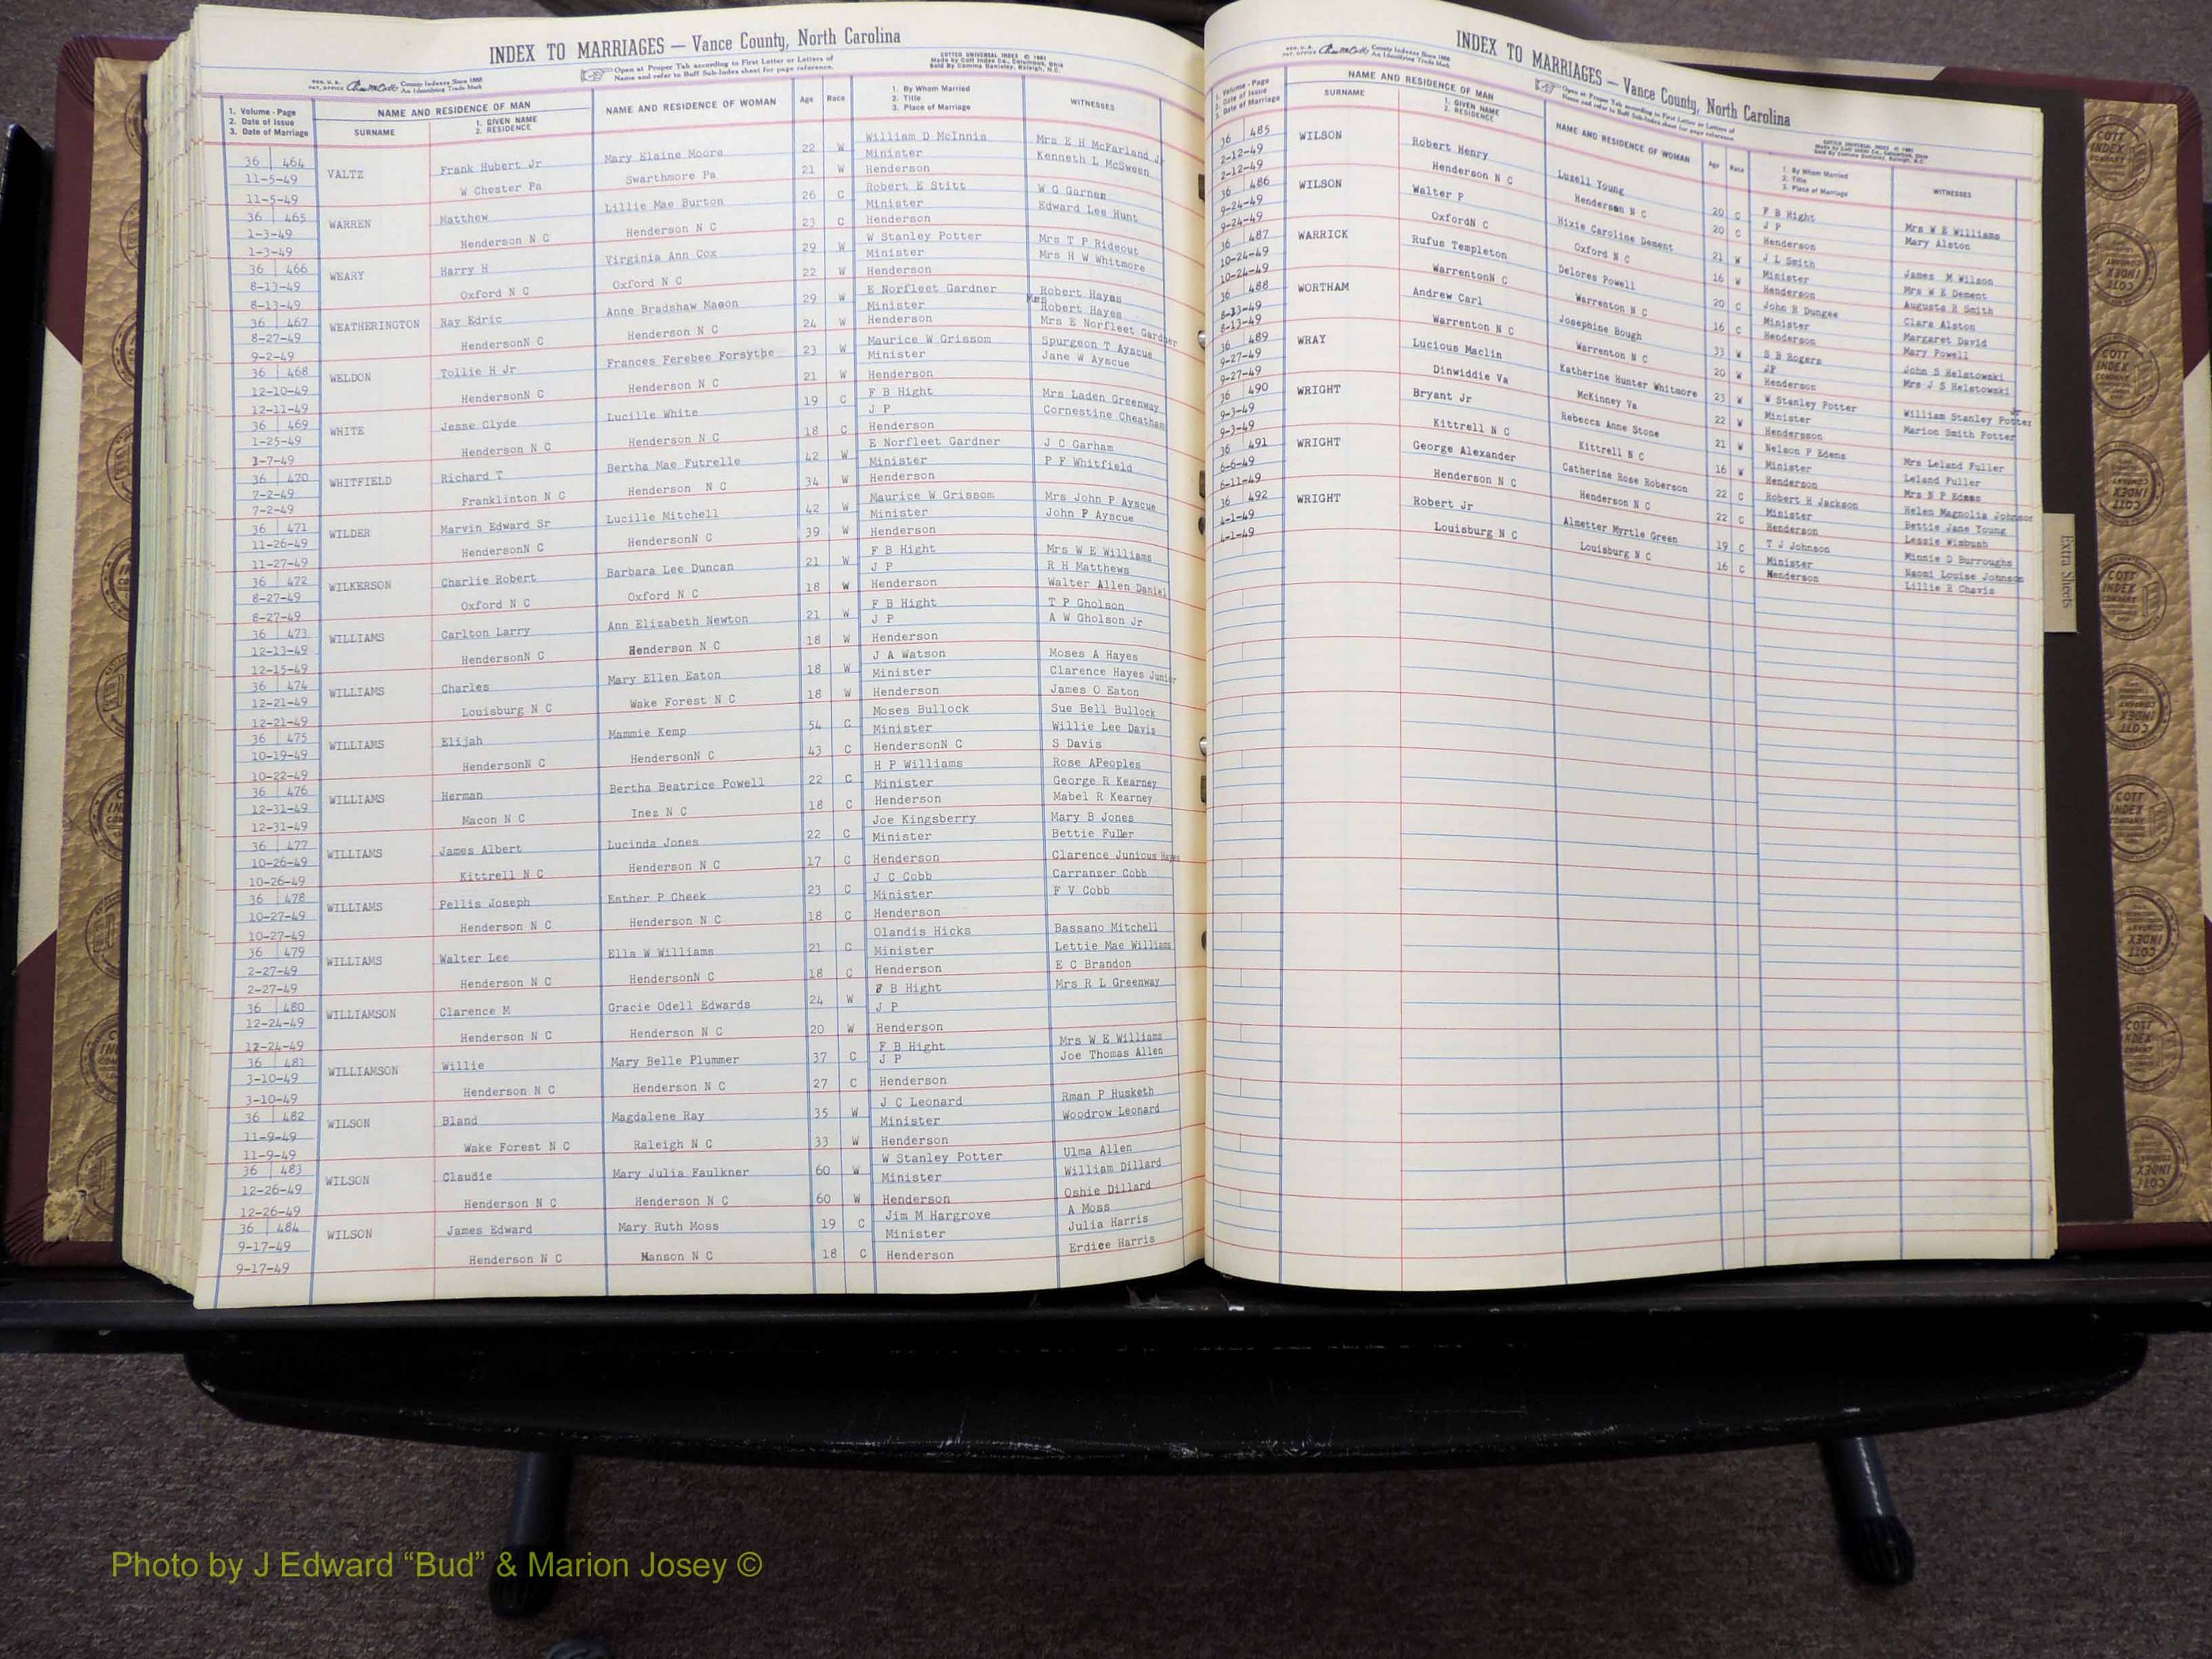 INDEX TO MARRIAGES — Vance County, North Carolina
REG. U.S. PAT. OFFICE County Indexes Since 1888 An Identifying Trade Mark
Open at Proper Tab according to First Letter or Letters of Name and refer to Buff Sub-Index sheet for page reference.
COTTCO UNIVERSAL INDEX © 1951 Made by Cott Index Co., Columbus, Ohio Sold By Owen G. Dunn
1. Volume - Page 2. Date of Issue 3. Date of Marriage
NAME AND RESIDENCE OF MAN
SURNAME 1. GIVEN NAME 2. RESIDENCE
NAME AND RESIDENCE OF WOMAN
Age Race
1. By Whom Married 2. Title 3. Place of Marriage
WITNESSES
36 464 VALTZ Frank Hubert Jr Mary Elaine Moore 22 W William D McInnis Mrs E H McFarland Jr
11-5-49 W Chester Pa Swarthmore Pa 21 W Minister Kenneth L McSween
11-5-49 Henderson
36 465 WARREN Matthew Lillie Mae Burton 26 C Robert E Stitt W G Garnes
1-3-49 Henderson N C Henderson N C 23 C Minister Edward Lee Hunt
1-3-49 Henderson
36 466 WEARY Harry H Virginia Ann Cox 29 W W Stanley Potter Mrs T P Rideout
8-13-49 Oxford N C Oxford N C 22 W Minister Mrs H W Whitmore
8-13-49 Henderson
36 467 WEATHERINGTON Ray Edric Anne Bradshaw Mason 29 W E Norfleet Gardner Robert Hayes
8-27-49 HendersonN C Henderson N C 24 W Minister Mrs Robert Hayes
9-2-49 Henderson Mrs E Norfleet Gardner
36 468 WELDON Tollie H Jr Frances Ferebee Forsythe 23 W Maurice W Grissom Spurgeon T Ayscue
12-10-49 HendersonN C Henderson N C 21 W Minister Jane W Ayscue
12-11-49 Henderson
36 469 WHITE Jesse Clyde Lucille White 19 C F B Hight Mrs Laden Greenway
1-25-49 Henderson N C Henderson N C 18 C J P Cornestine Cheatham
-7-49 Henderson
36 470 WHITFIELD Richard T Bertha Mae Futrelle 42 W E Norfleet Gardner J C Garham
7-2-49 Franklinton N C Henderson N C 34 W Minister P F Whitfield
7-2-49 Henderson
36 471 WILDER Marvin Edward Sr Lucille Mitchell 42 W Maurice W Grissom Mrs John P Ayscue
11-26-49 HendersonN C HendersonN C 39 W Minister John P Ayscue
11-27-49 Henderson
36 472 WILKERSON Charlie Robert Barbara Lee Duncan 21 W F B Hight Mrs W E Williams
8-27-49 Oxford N C Oxford N C 18 W J P R H Matthews
8-27-49 Henderson Walter Allen Daniel
36 473 WILLIAMS Carlton Larry Ann Elizabeth Newton 21 W F B Hight T P Gholson
12-13-49 HendersonN C Henderson N C 18 W J P A W Gholson Jr
12-15-49 Henderson
36 474 WILLIAMS Charles Mary Ellen Eaton 18 W J A Watson Moses A Hayes
12-21-49 Louisburg N C Wake Forest N C 18 W Minister Clarence Hayes Junior
12-21-49 Henderson James O Eaton
36 475 WILLIAMS Elijah Mammie Kemp 54 C Moses Bullock Sue Bell Bullock
10-19-49 HendersonN C HendersonN C 43 C Minister Willie Lee Davis
10-22-49 HendersonN C S Davis
36 476 WILLIAMS Herman Bertha Beatrice Powell 22 C H P Williams Rose APeoples
12-31-49 Macon N C Inez N C 18 C Minister George R Kearney
12-31-49 Henderson Mabel R Kearney
36 477 WILLIAMS James Albert Lucinda Jones 22 C Joe Kingsberry Mary B Jones
10-26-49 Kittrell N C Henderson N C 17 C Minister Bettie Fuller
10-26-49 Henderson Clarence Junious Hayes
36 478 WILLIAMS Pellis Joseph Esther P Cheek 23 C J C Cobb Carranzer Cobb
10-27-49 Henderson N C Henderson N C 18 C Minister F V Cobb
10-27-49 Henderson
36 479 WILLIAMS Walter Lee Ella W Williams 21 C Olandis Hicks Bassano Mitchell
2-27-49 Henderson N C HendersonN C 18 C Minister Lettie Mae Williams
2-27-49 Henderson E C Brandon
36 480 WILLIAMSON Clarence M Gracie Odell Edwards 24 W F B Hight Mrs R L Greenway
12-24-49 Henderson N C Henderson N C 20 W J P
12-24-49 Henderson
36 481 WILLIAMSON Willie Mary Belle Plummer 37 C F B Hight Mrs W E Williams
3-10-49 Henderson N C Henderson N C 27 C J P Joe Thomas Allen
3-10-49 Henderson
36 482 WILSON Bland Magdalene Ray 35 W J C Leonard Rman P Husketh
11-9-49 Wake Forest N C Raleigh N C 33 W Minister Woodrow Leonard
11-9-49 Henderson
36 483 WILSON Claudie Mary Julia Faulkner 60 W W Stanley Potter Ulma Allen
12-26-49 Henderson N C Henderson N C 60 W Minister William Dillard
12-26-49 Henderson Oshie Dillard
36 484 WILSON James Edward Mary Ruth Moss 19 C Jim M Hargrove A Moss
9-17-49 Henderson N C Manson N C 18 C Minister Julia Harris
9-17-49 Henderson Erdiee Harris
INDEX TO MARRIAGES — Vance County, North Carolina
REG. U.S. PAT. OFFICE County Indexes Since 1888 An Identifying Trade Mark
Open at Proper Tab according to First Letter or Letters of Name and refer to Buff Sub-Index sheet for page reference.
1. Volume - Page 2. Date of Issue 3. Date of Marriage
NAME AND RESIDENCE OF MAN
SURNAME 1. GIVEN NAME 2. RESIDENCE
NAME AND RESIDENCE OF WOMAN
Age Race
1. By Whom Married 2. Title 3. Place of Marriage
WITNESSES
36 485 WILSON Robert Henry Luzell Young 20 C F B Hight Mrs W E Williams
2-12-49 Henderson N C Henderson N C 20 C J P Mary Alston
2-12-49 Henderson
36 486 WILSON Walter P Hixie Caroline Dement 21 W J L Smith James M Wilson
9-24-49 OxfordN C Oxford N C 16 W Minister Mrs W E Dement
9-24-49 Henderson Augusta R Smith
36 487 WARRICK Rufus Templeton Delores Powell 20 C John R Dungee Clara Alston
10-24-49 WarrentonN C Warrenton N C 16 C Minister Margaret David
10-24-49 Henderson Mary Powell
36 488 WORTHAM Andrew Carl Josephine Bough 33 W S B Rogers John S Helstowski
8-13-49 Warrenton N C Warrenton N C 20 W JP Mrs J S Helstowski
8-13-49 Henderson
36 489 WRAY Lucious Maclin Katherine Hunter Whitmore 23 W W Stanley Potter William Stanley Potter Jr
9-27-49 Dinwiddie Va McKinney Va 22 W Minister Marion Smith Potter
9-27-49 Hendersson
36 490 WRIGHT Bryant Jr Rebecca Anne Stone 21 W Nelson P Edens Mrs Leland Fuller
9-3-49 Kittrell N C Kittrell N C 16 W Minister Leland Fuller
9-3-49 Henderson Mrs N P Edens
36 491 WRIGHT George Alexander Catherine Rose Roberson 22 C Robert H Jackson Helen Magnolia Johnson
6-6-49 Henderson N C Henderson N C 22 C Minister Bettie Jane Young
6-11-49 Henderson Lessie Wimbush
36 492 WRIGHT Robert Jr Almetter Myrtle Green 19 C T J Johnson Minnie D Burroughs
4-1-49 Louisburg N C Louisburg N C 16 C Minister Naomi Louise Johnson
4-1-49 Henderson Lillie E Chavis
Extra Sheets
COTT INDEX COMPANY
Photo by J Edward “Bud” & Marion Josey ©